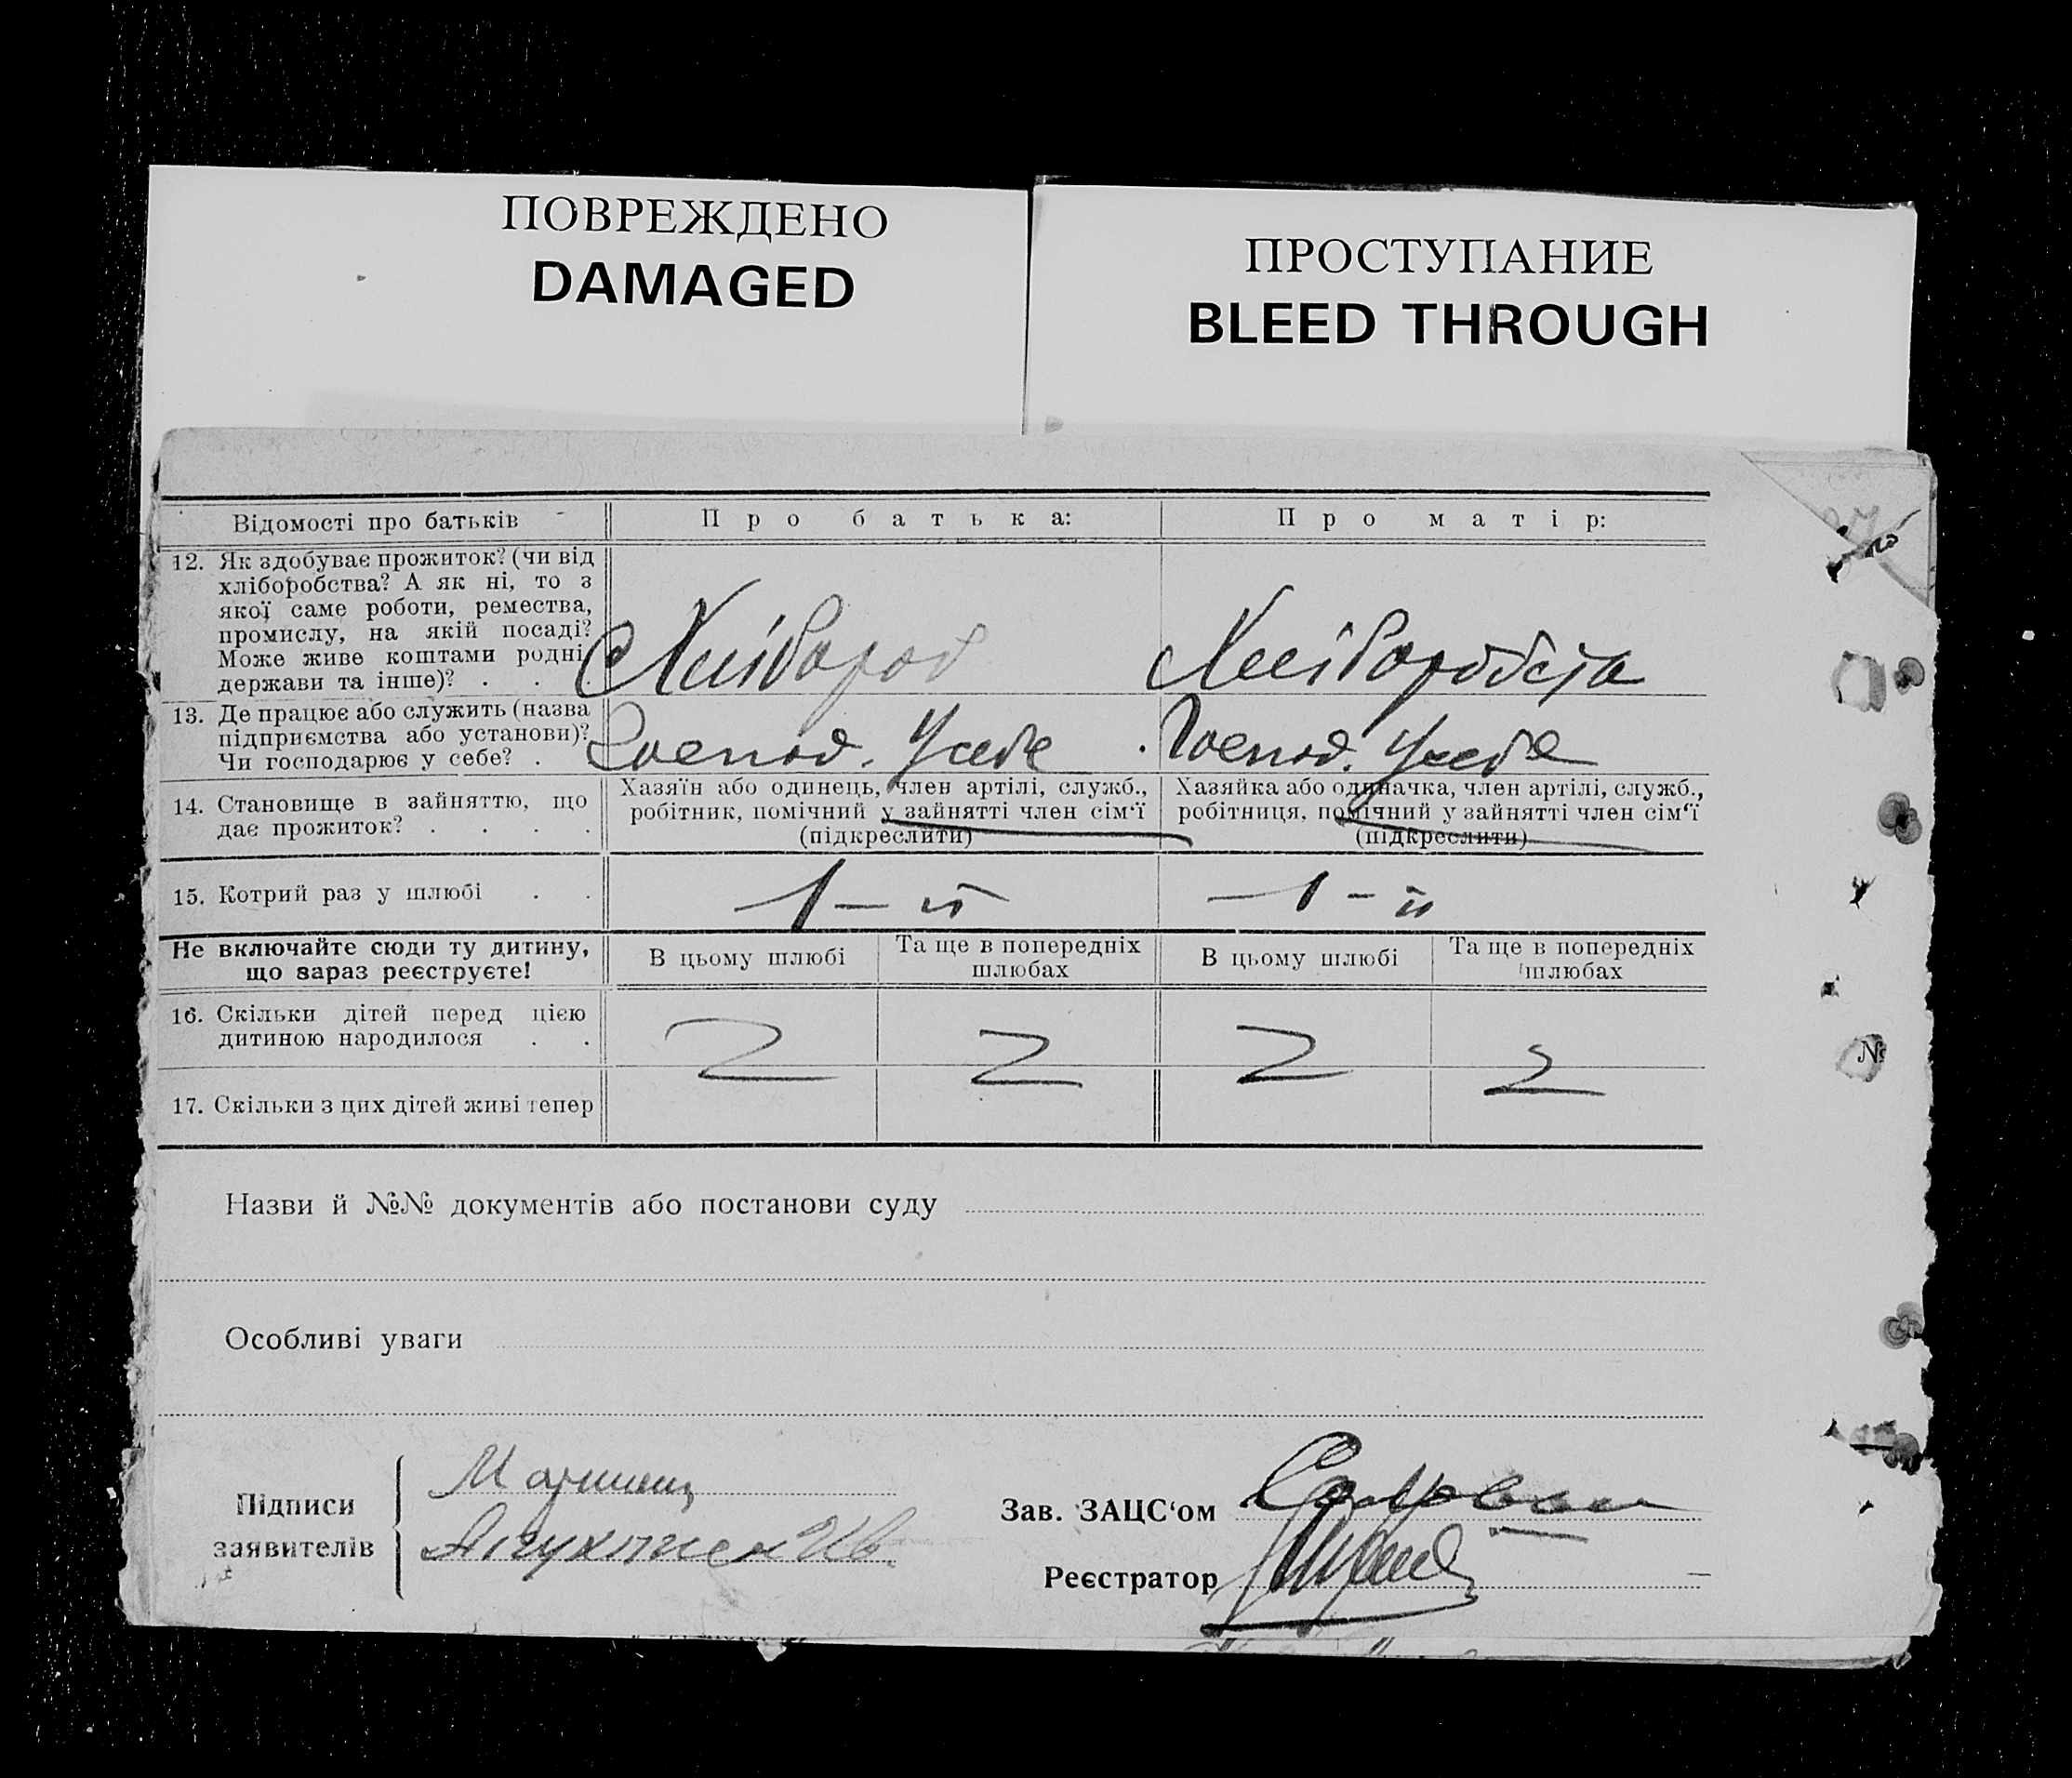 ПОВРЕЖДЕНО
DAMAGED
ПРОСТУПАНИЕ
BLEED THROUGH
Відомості про батьків
Про батька:
Про матір:
12. Як здобуває прожиток? (чи від
хліборобства? А як ні, то з
якої саме роботи, ремества,
промислу, на якій посаді?
Може живе коштами родні,
держави та інше)? . . .
Хлібороб
Хлібороб
13. Де працює або служить (назва
підприємства або установи)?
Чи господарює у себе? .
Господ. Усебе
Господ. Усебе
14. Становище в зайняттю, що
дає прожиток? . . . .
Хазяїн або одинець, член артілі, служб.,
робітник, помічний у зайнятті член сім‘ї
(підкреслити)
Хазяйка або одиначка, член артілі, служб.,
робітниця, помічний у зайнятті член сім‘ї
(підкреслити)
15. Котрий раз у шлюбі . .
1 – й
– 1 – й
Не включайте сюди ту дитину,
що зараз реєструєте!
В цьому шлюбі
Та ще в попередніх
шлюбах
В цьому шлюбі
Та ще в попередніх
шлюбах
16. Скільки дітей перед цією
дитиною народилося . .
2
2
2
2
17. Скільки з цих дітей живі тепер
Назви й №№ документів або постанови суду
Особливі уваги
Підписи
заявителів
Зав. ЗАЦС‘ом
Реєстратор
№